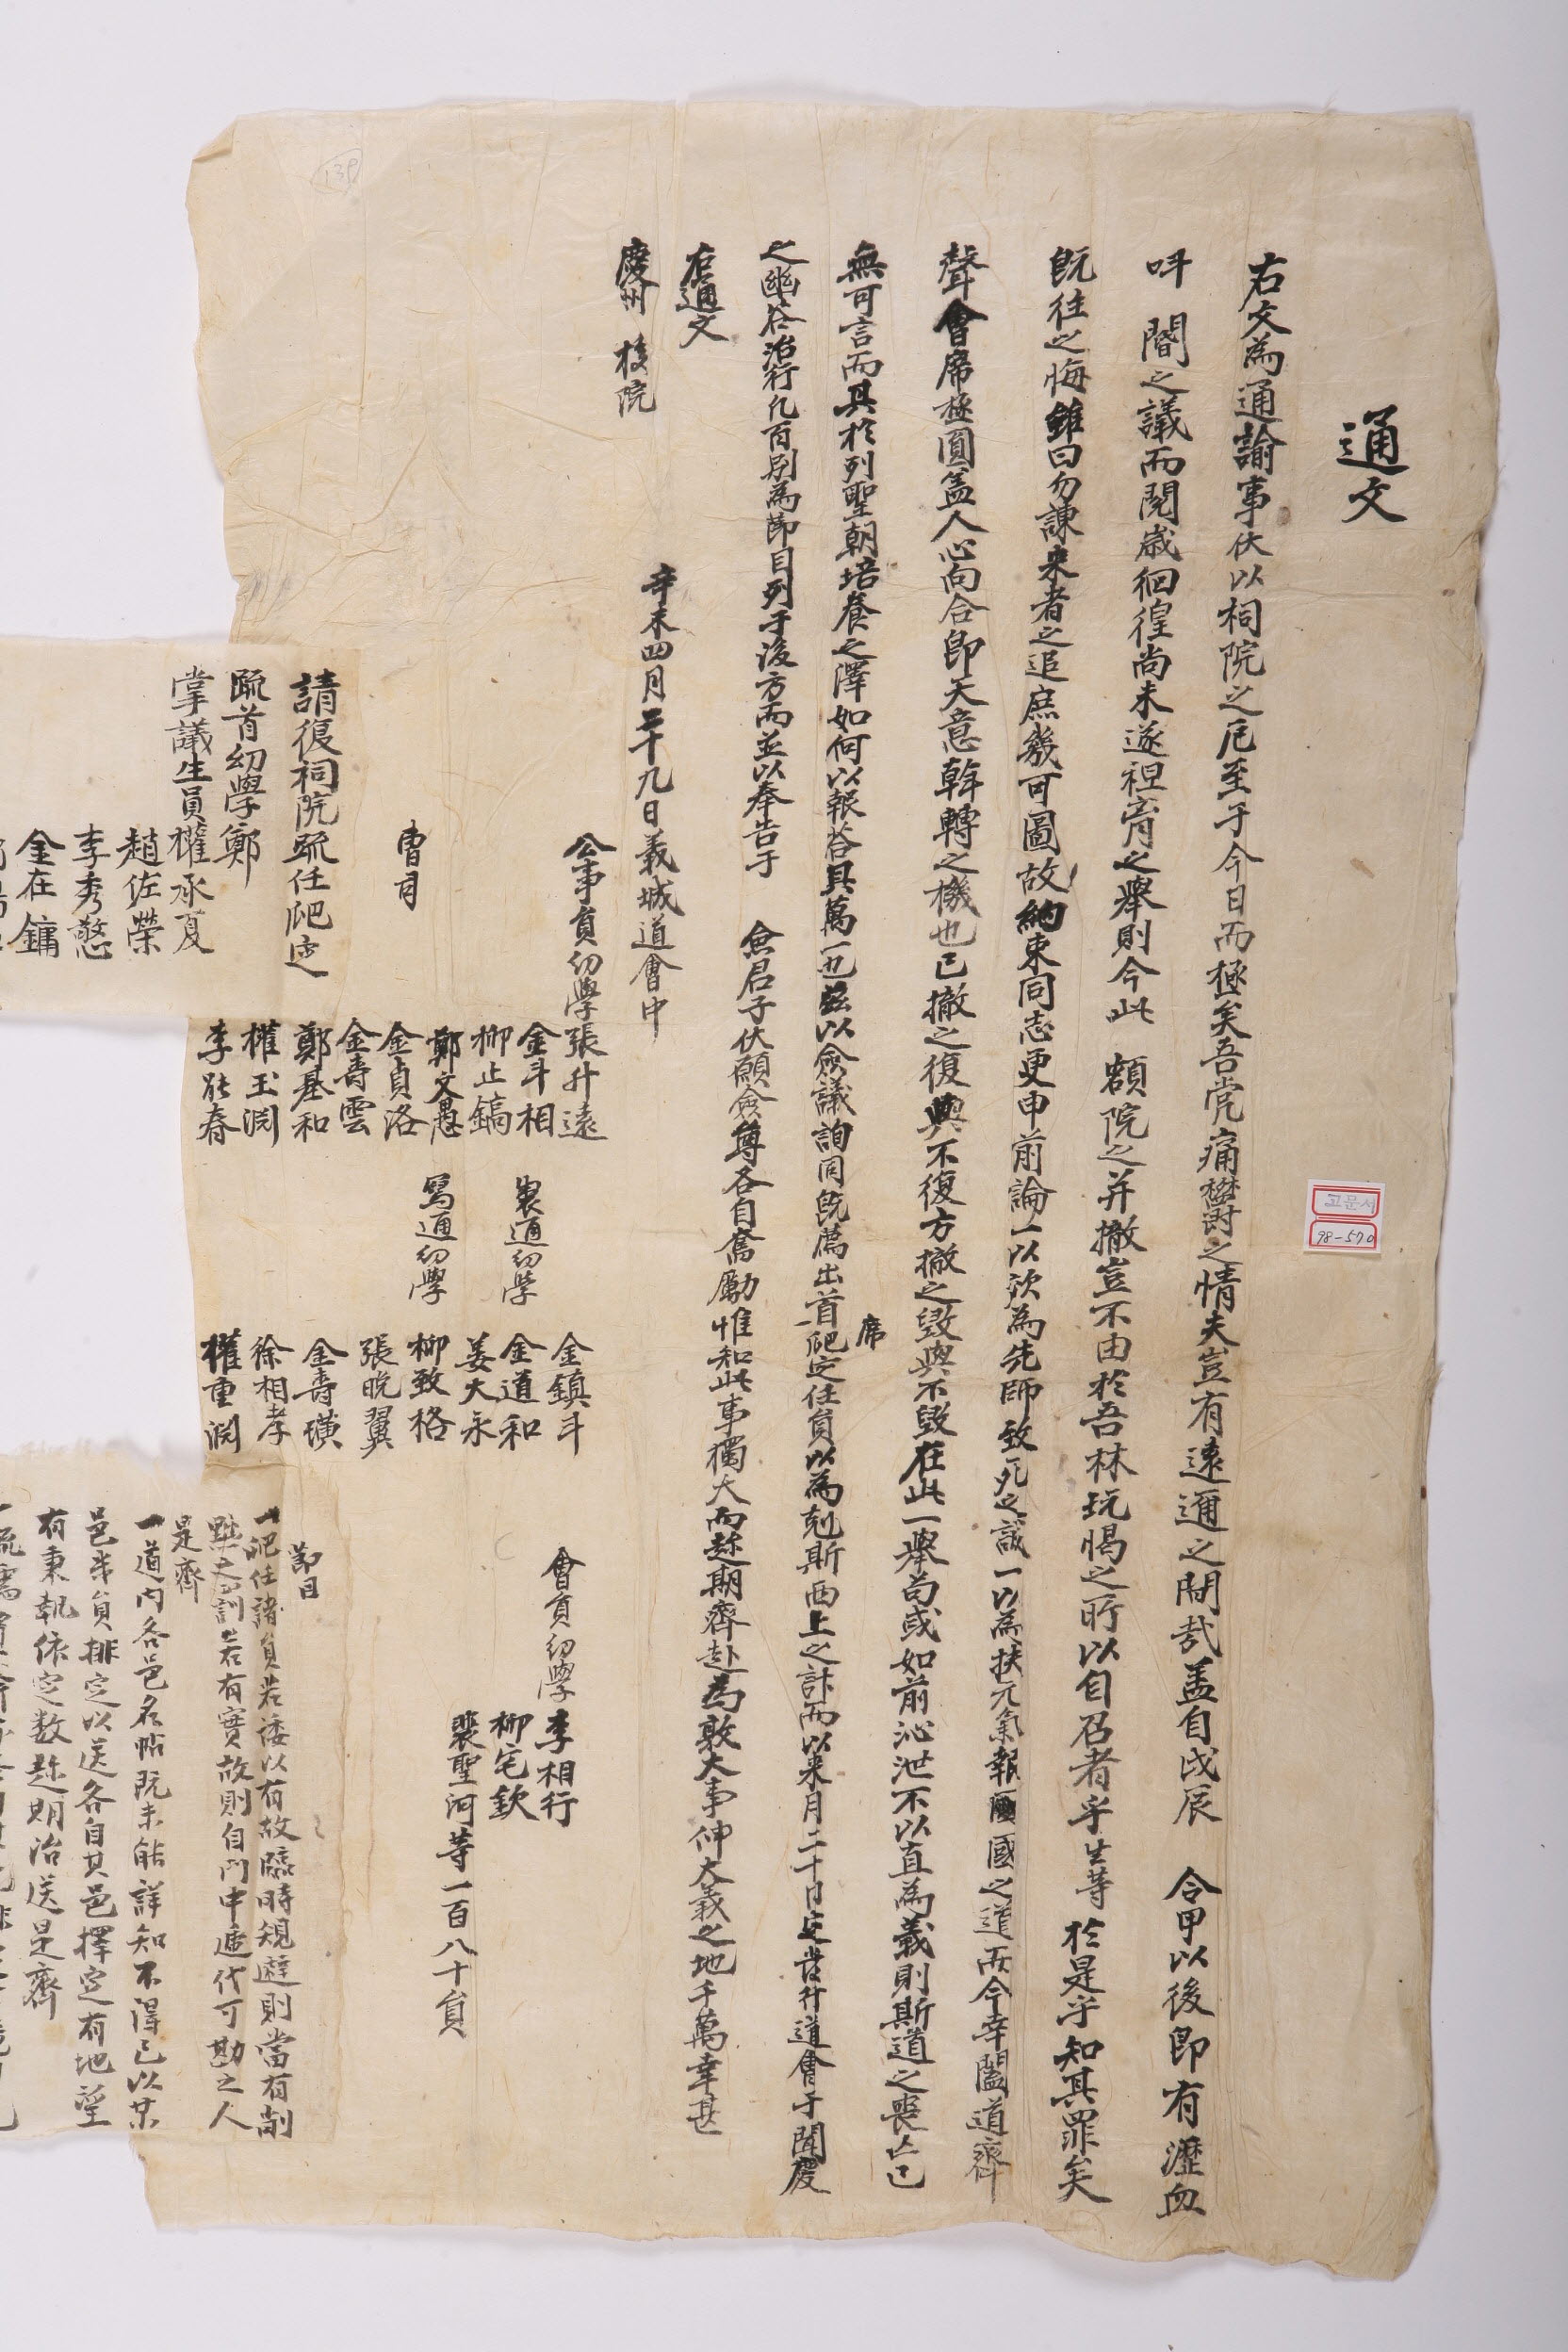 通文
右文為通諭事伏以祠院之厄至于今日而極矣吾党痛鬱之情夫豈有遠邇之間哉盖自戊辰 令甲以後即有瀝血
呌 閽之議而閱歲徊徨尚未遂袒肓之擧則今此 額院之并撤豈不由於吾林玩愒之所以自召者乎生等於是乎知其罪矣
旣往之悔雖曰勿諫来者之追庶幾可圖故納束同志更申前論一以欲為先師致死之誠一以為扶元氣報國之道而今幸闔道齊
聲會席極圓盖人心向合即天意斡轉之機也已撤之復與不復方撤之毁與不毁在此一擧苟或如前沁泄不以直為義則斯道之喪亡已
無可言而其於列聖朝培養之澤如何以報荅其萬一也玆以僉議詢同旣薦出首爬定任負以為剋斯西上之計而以来月二十日定發行道會于聞慶
席
之幽谷治行凡百别為節目列于後方而並以奉告于 僉君子伏願僉尊各自奮勵惟知此事獨大而趂期齊赴為敦大事伸大義之地千萬幸甚
右通文
慶州 校院
辛未四月二十九日義城道會中
公事負幼學張升遠
金斗相
柳止鎬
鄭文愚
金貞洛
金壽雲
鄭基和
權玉淵
李能春
曺司
製通幼學
寫通幼學
金鎮斗
金道和
姜大永
柳致格
張晩翼
金壽璜
徐相孝
權重淵
會負幼學李相行
柳宅欽
裴聖河等一百八十負
請復祠院疏任爬定
疏首幼學鄭
掌議生員權承夏
趙佐榮
李秀憼
金在鏞
節目
一爬任諸負若諉以有故臨時規避則當有削
黜之罰若有實故則自門中遞代可勘之人
是齊
一道内各邑名帖旣未能詳知不得已以某
邑幾負排定以送各自其邑擇定有地望
有秉執依定数趂期治送是齊
고문서
98-570
139